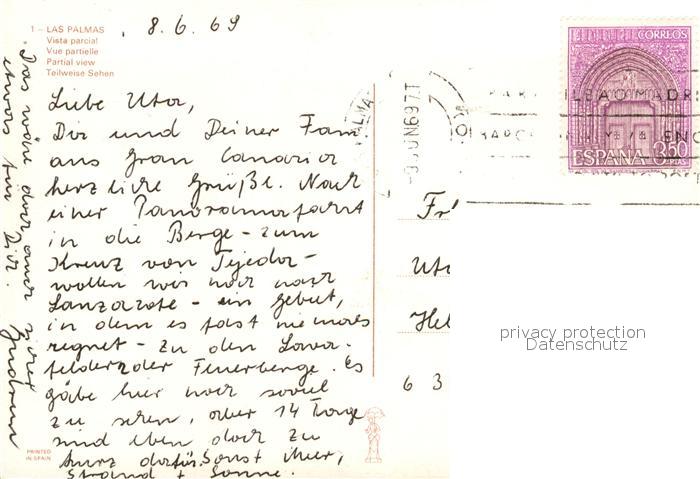 1 – LAS PALMAS
Vista parcial
Vue partielle
Partial view
Teilweise Sehen
8.6.69
Liebe Uta,
Dir und Deiner Fam
aus Gran Canaria
herzliche Grüße. Nach
einer Panoramafahrt
in die Berge – zum
Kreuz von Tejeda –
wollen wir noch nach
Lanzarote – ein Gebiet,
in dem es fast niemals
regnet – zu den Lava-
feldern der Feuerberge. Es
gäbe hier noch soviel
zu sehen, aber 14 Tage
sind eben doch zu
kurz dafür. Sonst Meer,
Strand + Sonne.
Das wäre
etwas für Dich.
Gudrun
PRINTED
IN SPAIN
CORREOS
ESPAÑA 3'50
PTAS
Fr
Uta
Hel
6 3
privacy protection
Datenschutz